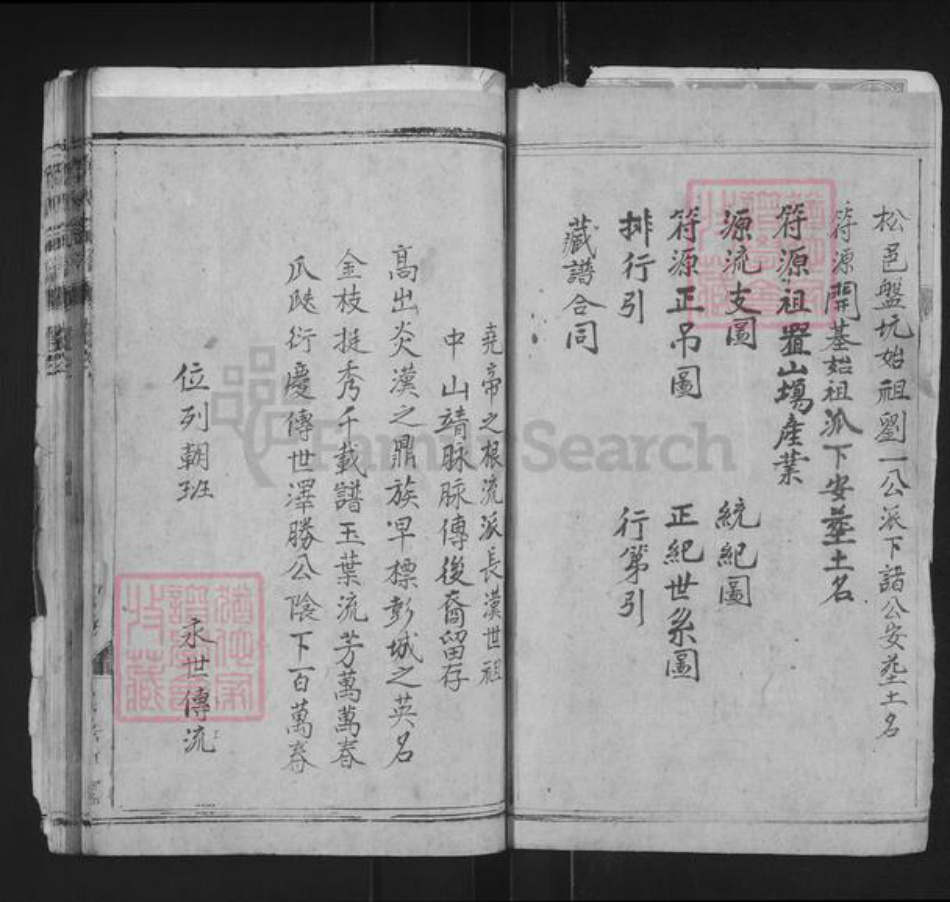 松邑盤坑始祖劉一公派下諸公安塟土名
符源開基始祖派下安塟土名
符源祖置山塲產業
源流支圖
統紀圖
符源正吊圖
正紀世系圖
排行引
行第引
藏譜合同
堯帝之根流派長漢世祖
中山靖脉脉傳後裔留存
高出炎漢之鼎族早標彭城之英名
金枝挺秀千載譜玉葉流芳萬萬春
瓜瓞衍慶傳世澤勝公陰下百萬春
位列朝班
永世傳流
FamilySearch